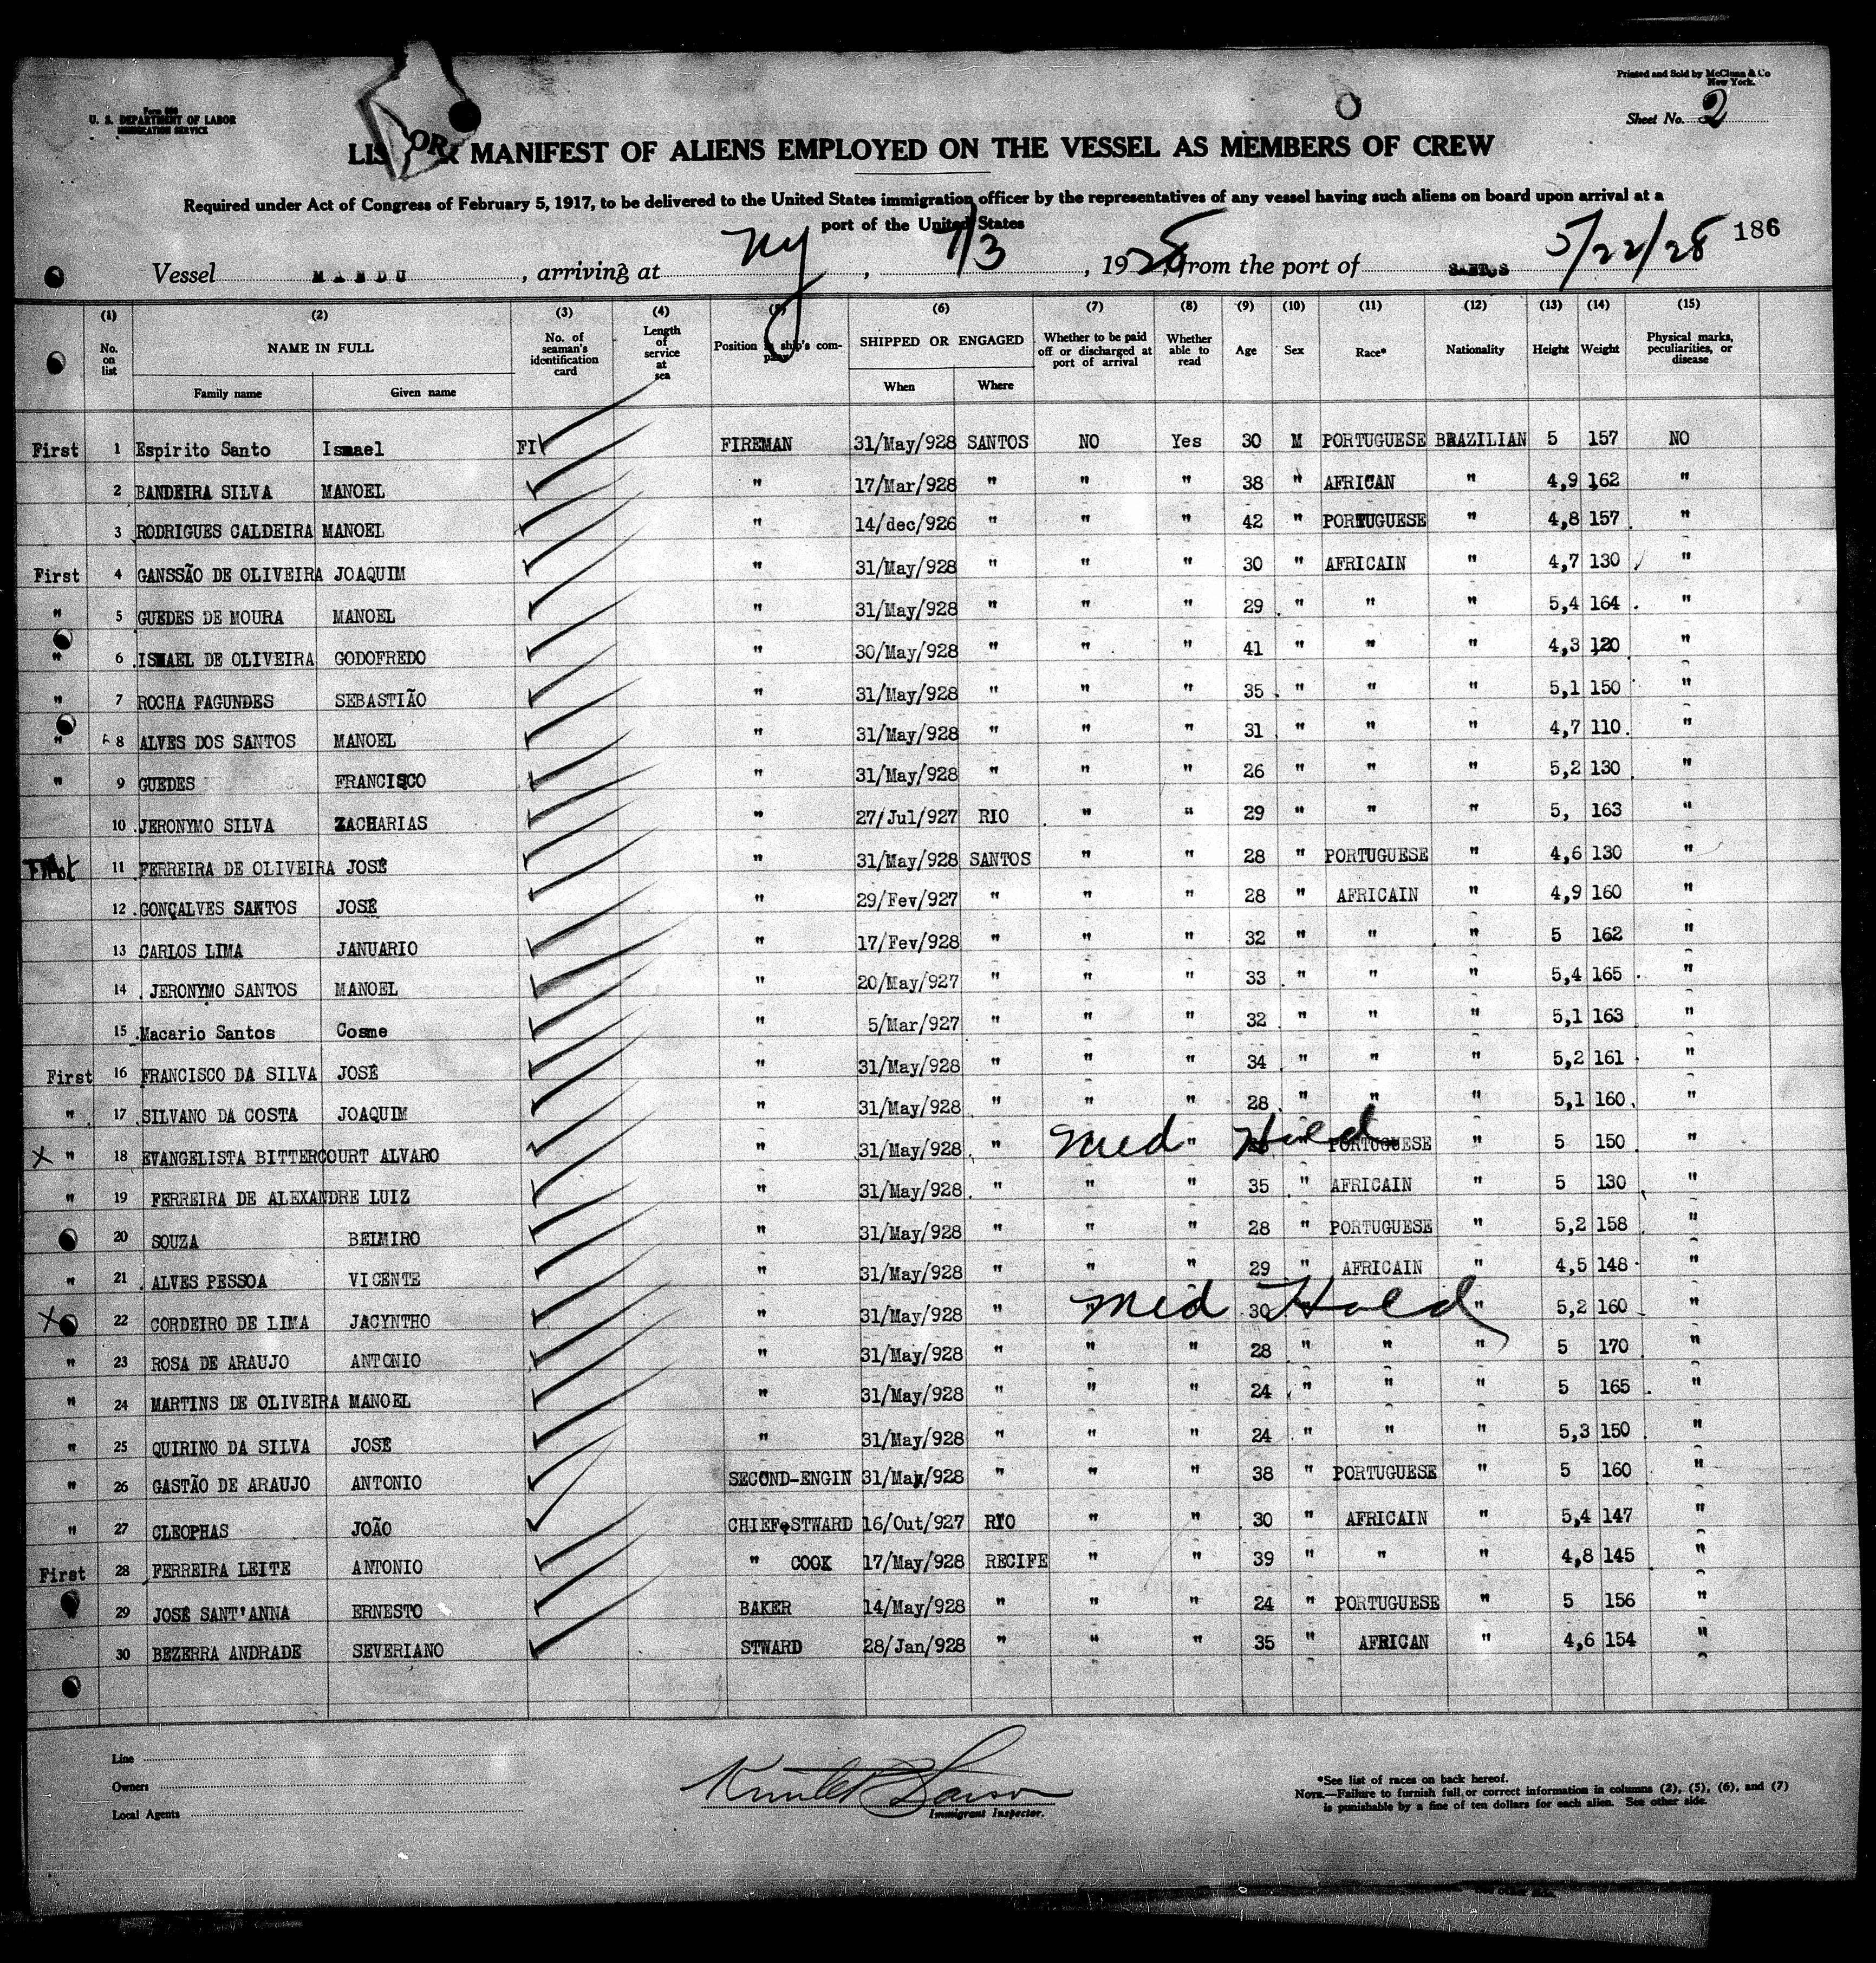 Printed and Sold by McClunn & Co
New York.
Form 680
U. S. DEPARTMENT OF LABOR
IMMIGRATION SERVICE
Sheet No. 2
LIS OR MANIFEST OF ALIENS EMPLOYED ON THE VESSEL AS MEMBERS OF CREW
Required under Act of Congress of February 5, 1917, to be delivered to the United States immigration officer by the representatives of any vessel having such aliens on board upon arrival at a
port of the United States
186
Vessel MANDU, arriving at NY, 7/3, 1928, from the port of SANTOS 5/22/28
(1) (2) (3) (4) (5) (6) (7) (8) (9) (10) (11) (12) (13) (14) (15)
No. on list NAME IN FULL No. of seaman's identification card Length of service at sea Position in ship's company SHIPPED OR ENGAGED Whether to be paid off or discharged at port of arrival Whether able to read Age Sex Race* Nationality Height Weight Physical marks, peculiarities, or disease
Family name Given name When Where
First 1 Espirito Santo Ismael FI FIREMAN 31/May/928 SANTOS NO Yes 30 M PORTUGUESE BRAZILIAN 5 157 NO
2 BANDEIRA SILVA MANOEL " 17/Mar/928 " " " 38 " AFRICAN " 4,9 162 "
3 RODRIGUES CALDEIRA MANOEL " 14/dec/926 " " " 42 " PORTUGUESE " 4,8 157 "
First 4 GANSSÃO DE OLIVEIRA JOAQUIM " 31/May/928 " " " 30 " AFRICAIN " 4,7 130 "
" 5 GUEDES DE MOURA MANOEL " 31/May/928 " " " 29 " " " 5,4 164 "
" 6 ISMAEL DE OLIVEIRA GODOFREDO " 30/May/928 " " " 41 " " " 4,3 120 "
" 7 ROCHA FAGUNDES SEBASTIÃO " 31/May/928 " " " 35 " " " 5,1 150 "
" 8 ALVES DOS SANTOS MANOEL " 31/May/928 " " " 31 " " " 4,7 110 "
" 9 GUEDES FRANCISCO " 31/May/928 " " " 26 " " " 5,2 130 "
10 JERONYMO SILVA ZACHARIAS " 27/Jul/927 RIO " " 29 " " " 5, 163 "
First 11 FERREIRA DE OLIVEIRA JOSÉ " 31/May/928 SANTOS " " 28 " PORTUGUESE " 4,6 130 "
12 GONÇALVES SANTOS JOSÉ " 29/Fev/927 " " " 28 " AFRICAIN " 4,9 160 "
13 CARLOS LIMA JANUARIO " 17/Fev/928 " " " 32 " " " 5 162 "
14 JERONYMO SANTOS MANOEL " 20/May/927 " " " 33 " " 5,4 165 "
15 Macario Santos Cosme " 5/Mar/927 " " " 32 " " " 5,1 163 "
First 16 FRANCISCO DA SILVA JOSÉ " 31/May/928 " " " 34 " " " 5,2 161 "
" 17 SILVANO DA COSTA JOAQUIM " 31/May/928 " " " 28 " " " 5,1 160 "
X " 18 EVANGELISTA BITTERCOURT ALVARO " 31/May/928 " Med " Hold PORTUGUESE " 5 150 "
" 19 FERREIRA DE ALEXANDRE LUIZ " 31/May/928 " " " 35 " AFRICAIN " 5 130 "
20 SOUZA BEIMIRO " 31/May/928 " " " 28 " PORTUGUESE " 5,2 158 "
" 21 ALVES PESSOA VICENTE " 31/May/928 " " " 29 " AFRICAIN " 4,5 148 "
X 22 CORDEIRO DE LIMA JACYNTHO " 31/May/928 " " Med 30 Hold " 5,2 160 "
" 23 ROSA DE ARAUJO ANTONIO " 31/May/928 " " " 28 " " " 5 170 "
" 24 MARTINS DE OLIVEIRA MANOEL " 31/May/928 " " " 24 " " " 5 165 "
" 25 QUIRINO DA SILVA JOSÉ " 31/May/928 " " " 24 " " " 5,3 150 "
" 26 GASTÃO DE ARAUJO ANTONIO SECOND-ENGIN 31/May/928 " " " 38 " PORTUGUESE " 5 160 "
" 27 CLEOPHAS JOÃO CHIEF STWARD 16/Out/927 RIO " " 30 " AFRICAIN " 5,4 147 "
First 28 FERREIRA LEITE ANTONIO " COOK 17/May/928 RECIFE " " 39 " " " 4,8 145 "
29 JOSÉ SANT'ANNA ERNESTO BAKER 14/May/928 " " " 24 " PORTUGUESE " 5 156 "
30 BEZERRA ANDRADE SEVERIANO STWARD 28/Jan/928 " " " 35 " AFRICAN " 4,6 154 "
Line
Owners
Local Agents
Immigrant Inspector.
*See list of races on back hereof.
NOTE.—Failure to furnish full or correct information in columns (2), (5), (6), and (7)
is punishable by a fine of ten dollars for each alien. See other side.